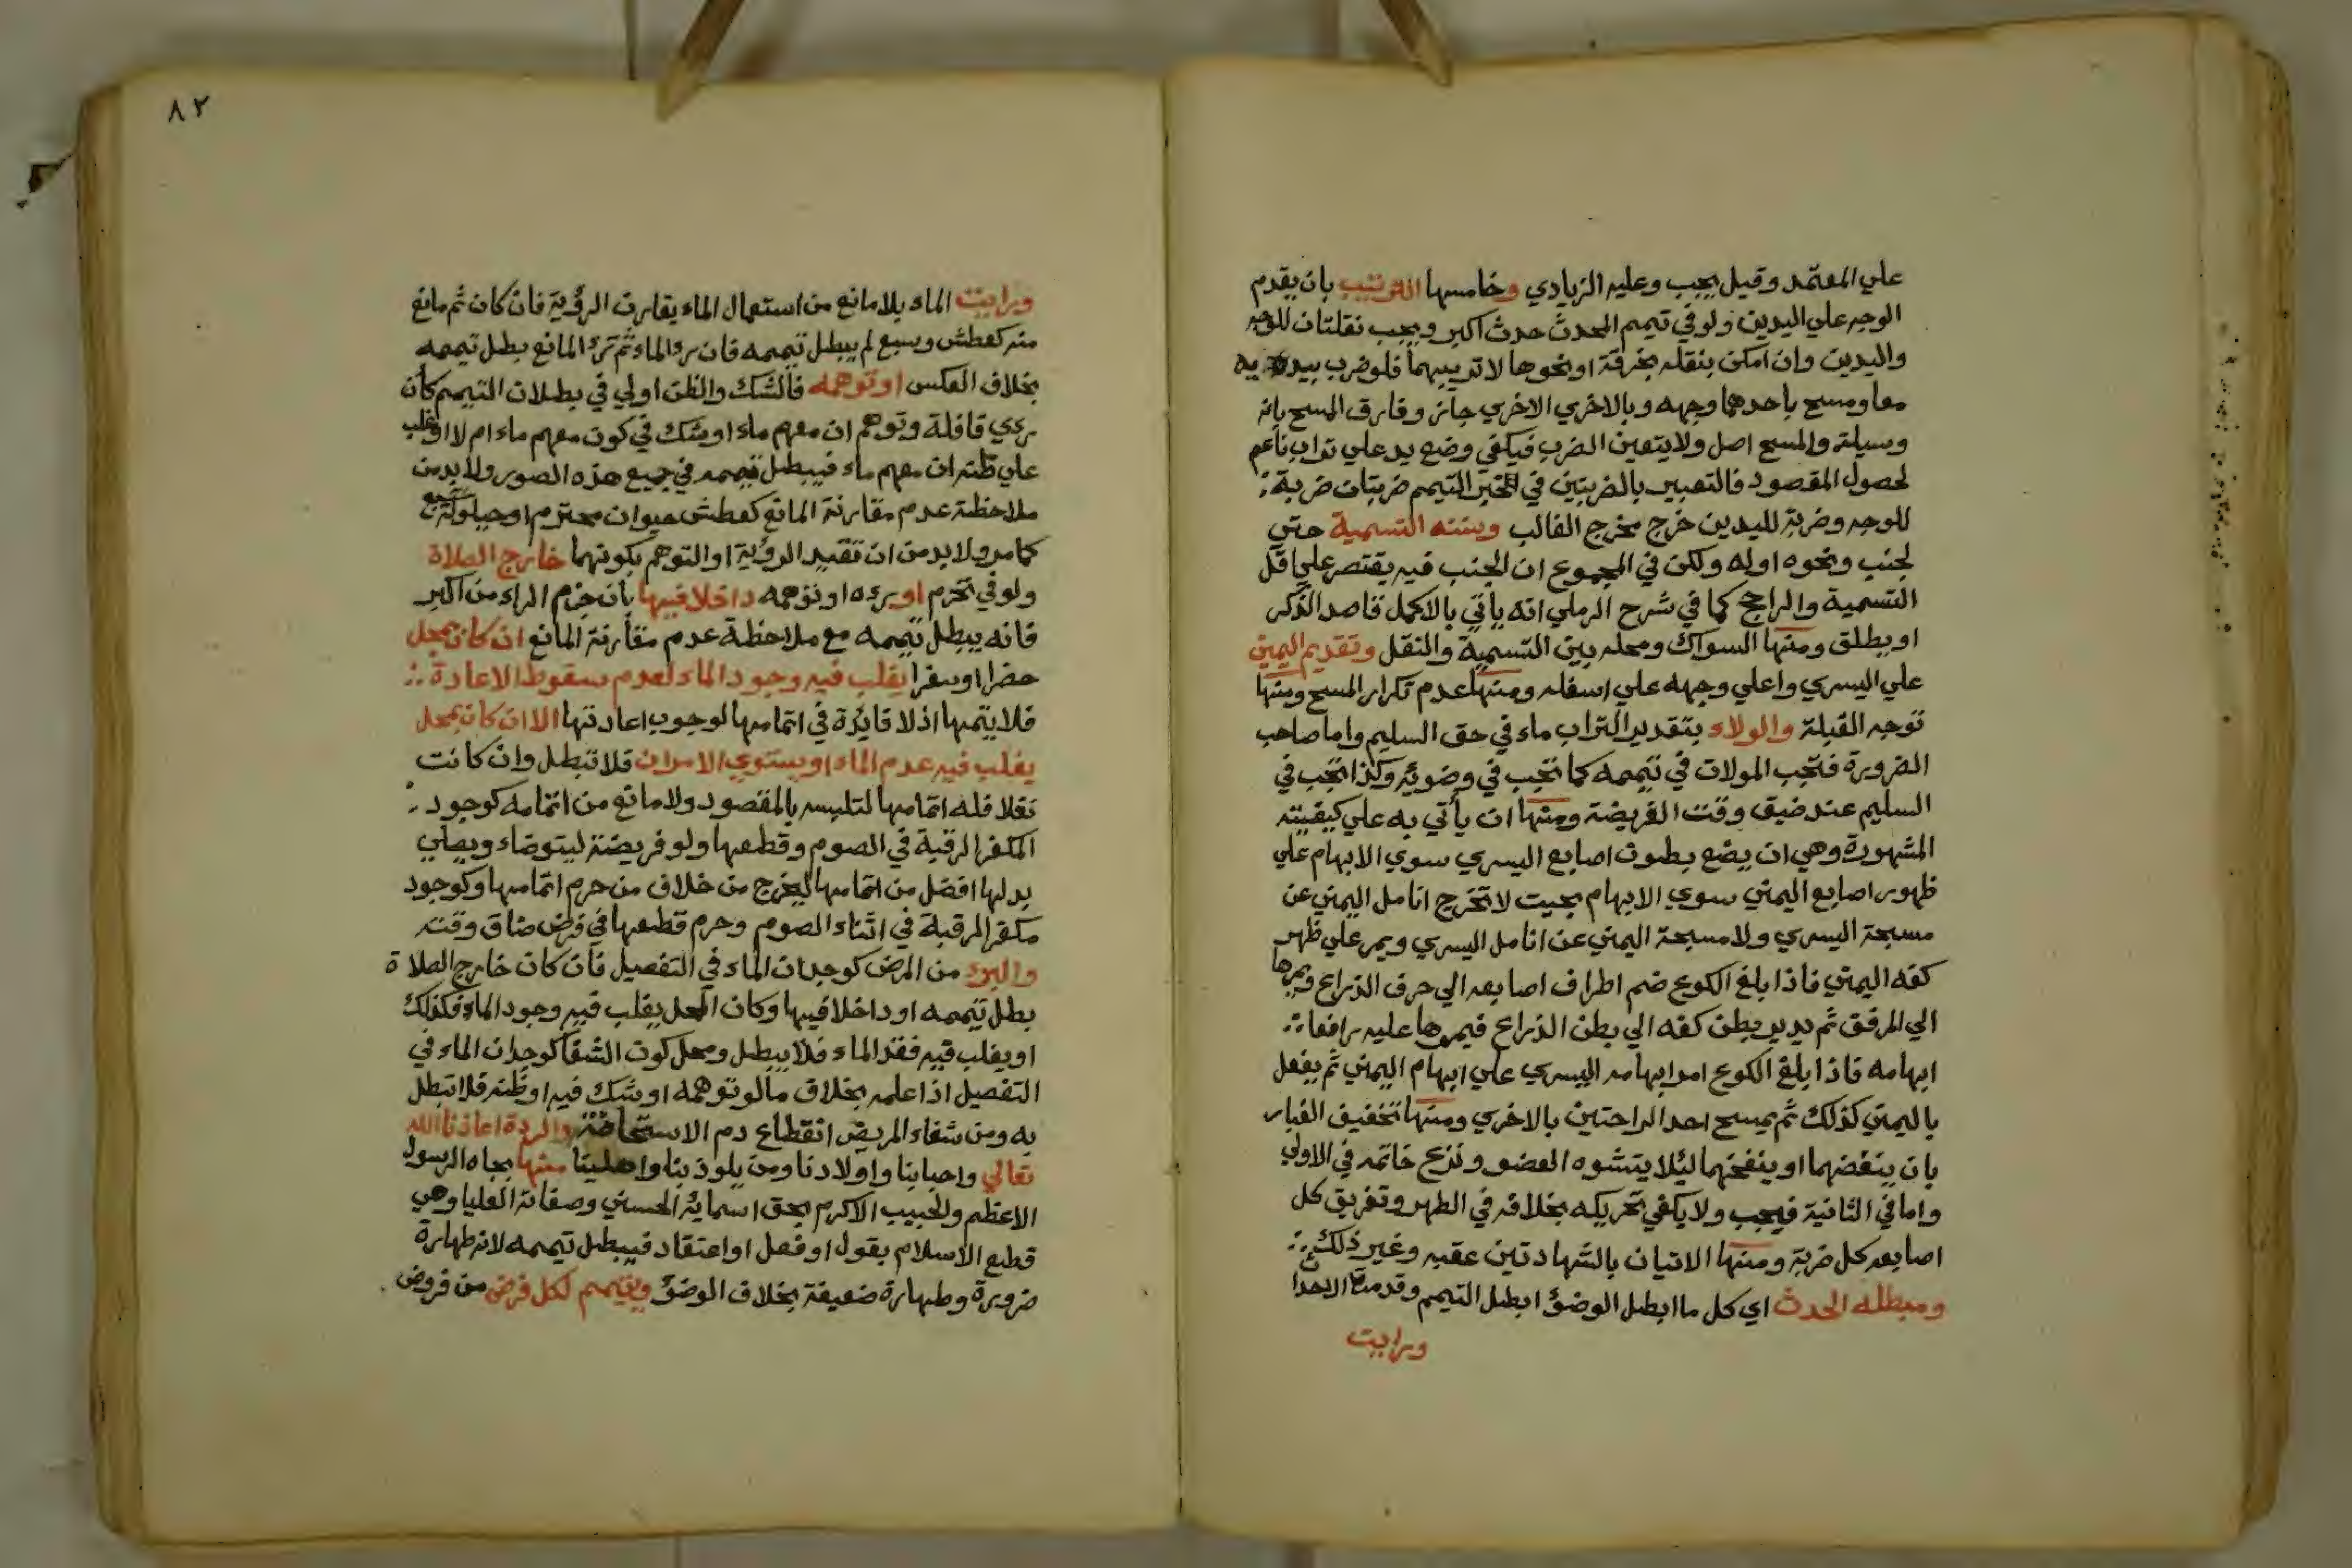 علي المعتمد وقيل يجب وعليه الزيادي وخامسها الترتيب بان يقدم
الوجه علي اليدين ولو في تيمم المحدث حدث اكبر ويجب نقلتان للوجه
واليدين وان امكن بنقله بخرقة او نحوها لا ترتيبهما فلو ضرب بيديه
معا ومسح باحدهما وجهه وبالاخري الاخري جاز وفارق المسح بانه
وسيلة والمسح اصل ولا يتعين الضرب فيكفي وضع يد علي تراب ناعم
لحصول المقصود فالتعبير بالضربتين في الخبر التيمم ضربتان ضربة
للوجه وضربة لليدين خرج مخرج الغالب وسننه التسمية حتي
لجنب ونحوه اوله ولكن في المجموع ان الجنب فيه يقتصر علي اقل
التسمية والراجح كما في شرح الرملي انه ياتي بالاكمل قاصد الذكر
او يطلق ومنها السواك ومحله بين التسمية والنقل وتقديم اليمين
علي اليسري واعلي وجهه علي اسفله ومنها عدم تكرار المسح ومنها
توجه القبلة والولاء بتقدير التراب ماء في حق السليم واما صاحب
الضرورة فتجب المولات في تيممه كما تجب في وضوئه وكذا تجب في
السليم عند ضيق وقت الفريضة ومنها ان يأتي به علي كيفيته
المشهورة وهي ان يضع بطون اصابع اليسري سوي الابهام علي
ظهور اصابع اليمني سوي الابهام بحيث لا تخرج انامل اليمني عن
مسبحة اليسري ولا مسبحة اليمني عن انامل اليسري ويمر علي ظهر
كفه اليمني فاذا بلغ الكوع ضم اطراف اصابعه الي حرف الذراع ويمرها
الي المرفق ثم يدير بطن كفه الي بطن الذراع فيمرها عليه رافعا
ابهامه فاذا بلغ الكوع امر ابهامه اليسري علي ابهام اليمني ثم يفعل
باليمني كذلك ثم يمسح احد الراحتين بالاخري ومنها تخفيف الغبار
بان ينفضهما او ينفخهما ليلا يتشوه العضو ونزع خاتمه في الاولي
واما في الثانية فيجب ولا يكفي تحريكه بخلافه في الطهر وتفريق كل
اصابعه كل ضربة ومنها الاتيان بالشهادتين عقبه وغير ذلك
ومبطله الحدث اي كل ما ابطل الوضؤ ابطل التيمم وقدمت الاحدا
ورايت
٨٢
ورايت الماء بلا مانع من استعمال الماء يقارن الرؤية فان كان ثم مانع
منه كعطش وسبع لم يبطل تيممه فان رء الماء ثم ترك المانع بطل تيممه
بخلاف العكس او توهمه فالشك والظن اولي في بطلان التيمم كأن
رءي قافلة وتوهم ان معهم ماء او شك في كون معهم ماء ام لا او غلب
علي ظنه ان معهم ماء فيبطل تيممه في جميع هذه الصور ولا بد من
ملاحظة عدم مقارنة المانع كعطش حيوان محترم او حيلولة سبع
كما مر ولا بد من ان تقيد الرؤية او التوهم بكونهما خارج الصلاة
ولو في تحرم او رءه او توهمه داخلا فيها بأن حرم الراء من اكبر
فانه يبطل تيممه مع ملاحظة عدم مقارنة المانع ان كان بمحل
حضرا او سفرا يغلب فيه وجود الماء لعدم سقوط الاعادة
فلا يتمها اذ لا فايدة في اتمامها لوجوب اعادتها الا ان كان بمحل
يغلب فيه عدم الماء او يستوي الامران فلا تبطل وان كانت
نفلا فله اتمامها لتلبسه بالمقصود ولا مانع من اتمامه كوجود
المكفر الرقبة في الصوم وقطعها ولو فريضة ليتوضاء ويصلي
بدلها افضل من اتمامها ليخرج من خلاف من حرم اتمامها وكوجود
مكفر الرقبة في اثناء الصوم وحرم قطعها في فرض ضاق وقته
والبرء من المرض كوجدان الماء في التفصيل فان كان خارج الصلاة
بطل تيممه او داخلا فيها وكان المحل يغلب فيه وجود الماء فكذلك
او يغلب فيه فقد الماء فلا يبطل ومحل كون الشفا كوجدان الماء في
التفصيل اذا علمه بخلاف ما لو توهمه او شك فيه او ظنه فلا تبطل
به ومن شفاء المريض انقطاع دم الاستحاضة والردة اعاذنا الله
تعالي واحبابنا واولادنا ومن يلوذ بنا واهلينا منها بجاه الرسول
الاعظم والحبيب الاكرم بحق اسمايه الحسني وصفاته العليا وهي
قطع الاسلام بقول او فعل او اعتقاد فيبطل تيممه لانه طهارة
ضرورة وطهارة ضعيفة بخلاف الوضؤ ويتيمم لكل فرض من فروض